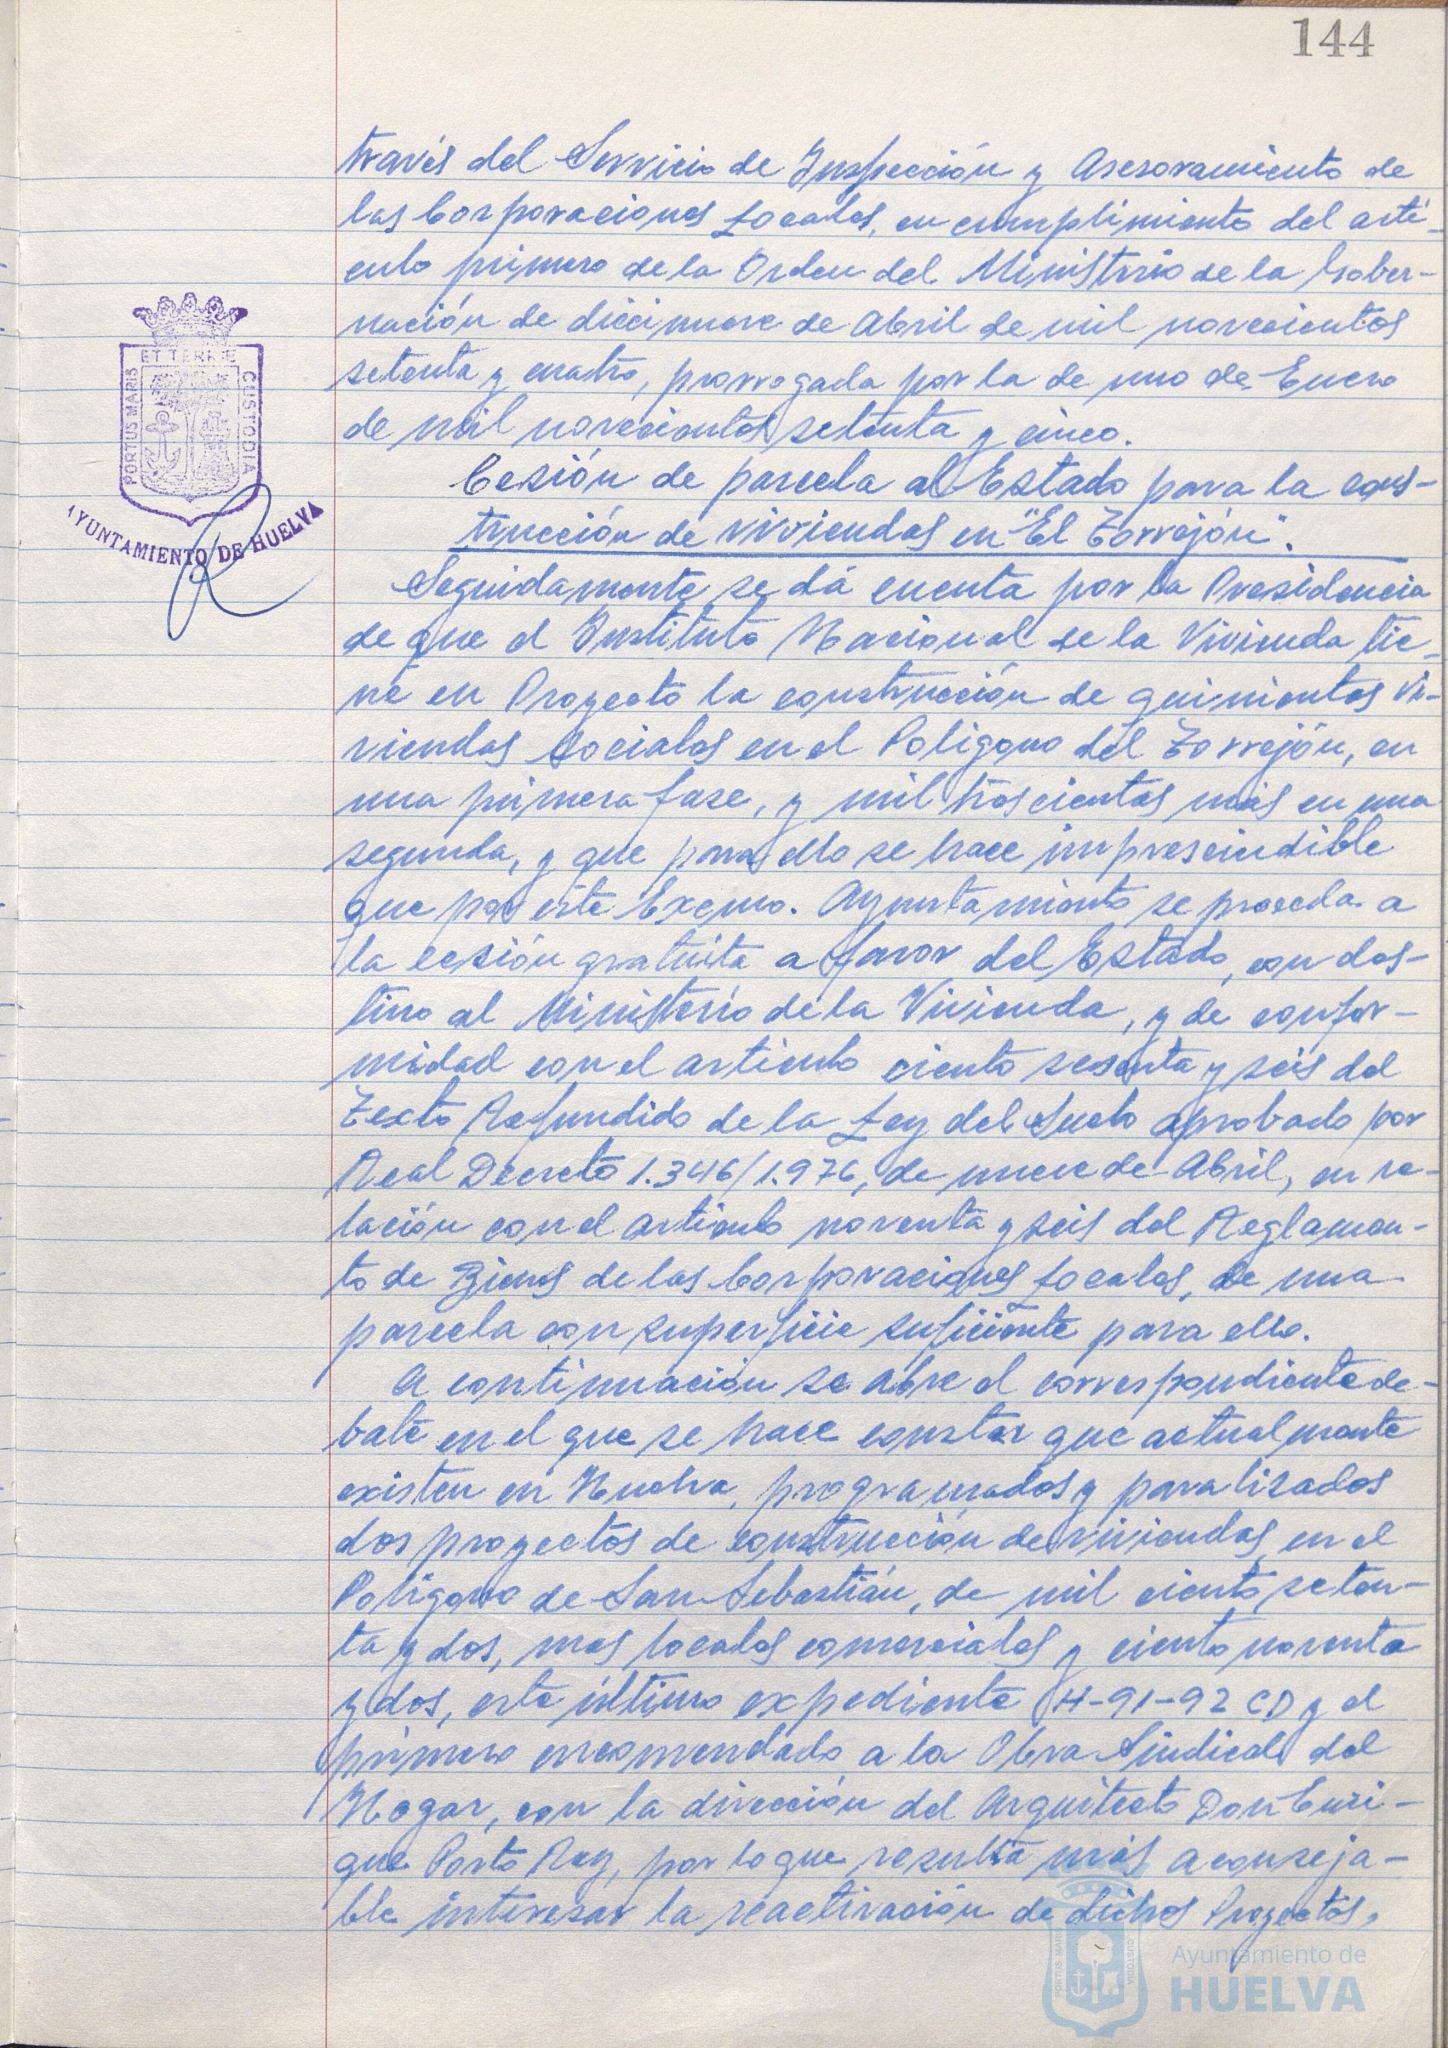 144
través del Servicio de Inspección y Asesoramiento de
las Corporaciones Locales, en cumplimiento del artí-
culo primero de la Orden del Ministerio de la Gober-
nación de diecinueve de Abril de mil novecientos
setenta y cuatro, prorrogada por la de uno de Enero
de mil novecientos setenta y cinco.
Cesión de parcela al Estado para la cons-
trucción de viviendas en "El Torrejón".
Seguidamente se dá cuenta por la Presidencia
de que el Instituto Nacional de la Vivienda tie-
ne en Proyecto la construcción de quinientas vi-
viendas sociales en el Poligono del Torrejón, en
una primera fase, y mil trescientas más en una
segunda, y que para ello se hace imprescindible
que por este Excmo. Ayuntamiento se proceda a
la cesión gratuita a favor del Estado, con des-
tino al Ministerio de la Vivienda, y de confor-
midad con el artículo ciento sesenta y seis del
Texto Refundido de la Ley del Suelo aprobado por
Real Decreto 1.346/1.976, de nueve de Abril, en re-
lación con el artículo noventa y seis del Reglamen-
to de Bienes de las Corporaciones Locales, de una
parcela con superficie suficiente para ello.
A continuación se abre el correspondiente de-
bate en el que se hace constar que actualmente
existen en Huelva, programados y paralizados
dos proyectos de construcción de viviendas en el
Polígono de San Sebastián, de mil ciento seten-
ta y dos, mas locales comerciales y ciento noventa
y dos, este último expediente H-91-92 CD y el
primero encomendado a la Obra Sindical del
Hogar, con la dirección del Arquitecto Don Enri-
que Porto Rey, por lo que resulta más aconseja-
ble interesar la reactivación de dichos Proyectos,
PORTUS MARIS
ET TERRE
CUSTODIA
AYUNTAMIENTO DE HUELVA
PORTUS MARIS
CUSTODIA
Ayuntamiento de
HUELVA